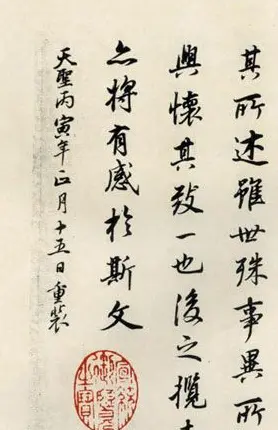 其所述雖世殊事異所
興懷其致一也後之攬
亦將有感於斯文
天聖丙寅年正月十五日重裝